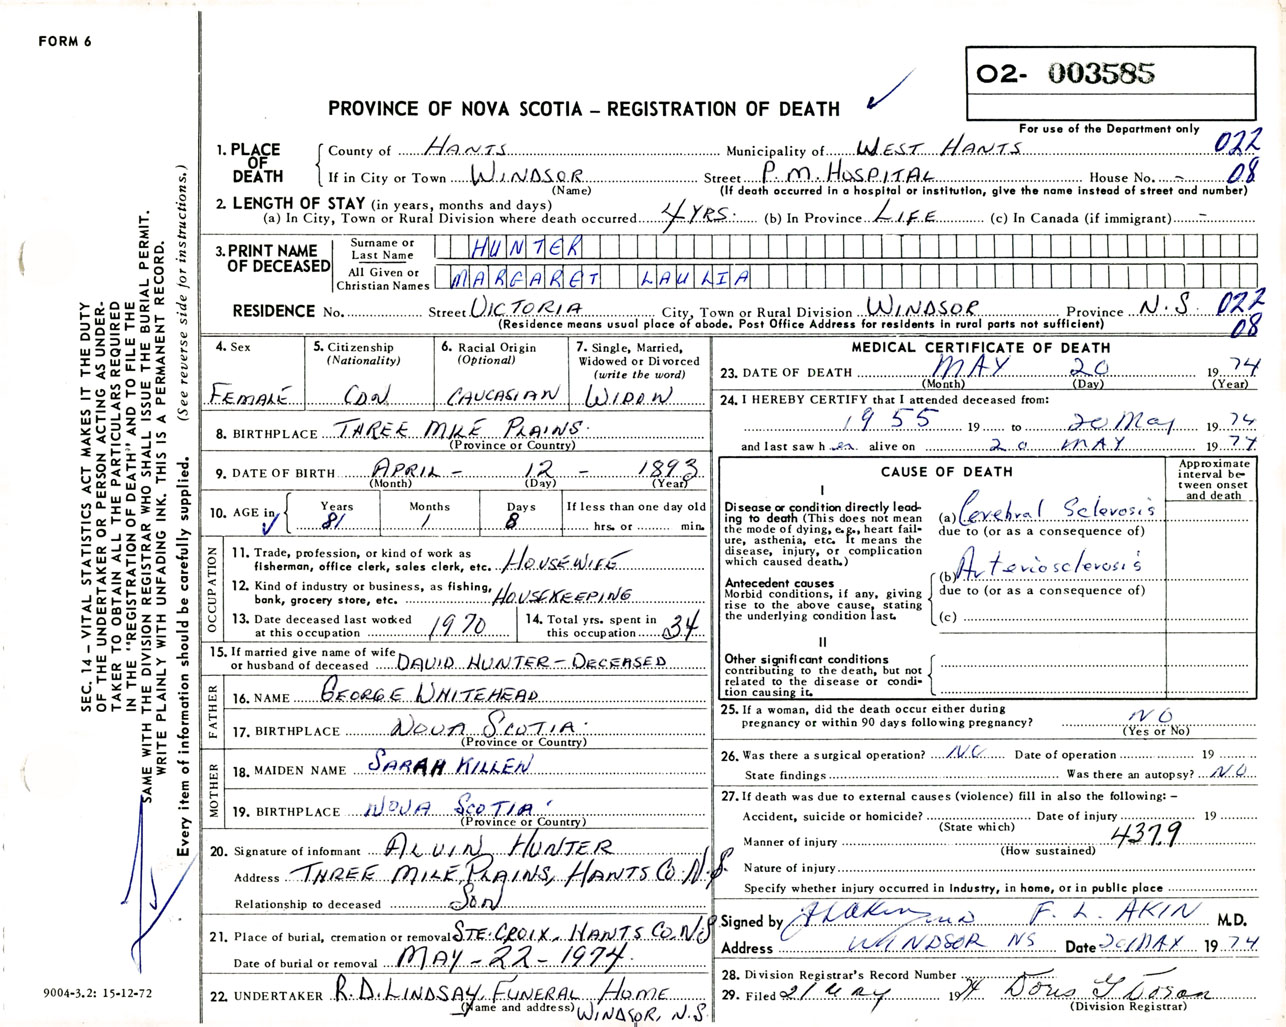 FORM 6
O2- 003585
PROVINCE OF NOVA SCOTIA – REGISTRATION OF DEATH
For use of the Department only
1. PLACE OF DEATH County of HANTS Municipality of WEST HANTS 022
If in City or Town WINDSOR Street P.M. HOSPITAL House No. - 08
(Name) (If death occurred in a hospital or institution, give the name instead of street and number)
2. LENGTH OF STAY (in years, months and days)
(a) In City, Town or Rural Division where death occurred 4 YRS. (b) In Province LIFE (c) In Canada (if immigrant) -
3. PRINT NAME OF DECEASED Surname or Last Name HUNTER
All Given or Christian Names MARGARET LAULIA
RESIDENCE No. Street VICTORIA City, Town or Rural Division WINDSOR Province N.S. 022
(Residence means usual place of abode. Post Office Address for residents in rural parts not sufficient) 08
4. Sex FEMALE
5. Citizenship (Nationality) CDN
6. Racial Origin (Optional) CAUCASIAN
7. Single, Married, Widowed or Divorced (write the word) WIDOW
8. BIRTHPLACE THREE MILE PLAINS.
(Province or Country)
9. DATE OF BIRTH APRIL - 12 - 1893
(Month) (Day) (Year)
10. AGE in Years 81 Months 1 Days 8 If less than one day old hrs. or min.
OCCUPATION
11. Trade, profession, or kind of work as fisherman, office clerk, sales clerk, etc. HOUSEWIFE
12. Kind of industry or business, as fishing, bank, grocery store, etc. HOUSEKEEPING
13. Date deceased last worked at this occupation 1970
14. Total yrs. spent in this occupation 34
15. If married give name of wife or husband of deceased DAVID HUNTER - DECEASED
FATHER
16. NAME GEORGE WHITEHEAD
17. BIRTHPLACE NOVA SCOTIA.
(Province or Country)
MOTHER
18. MAIDEN NAME SARAH KILLEN
19. BIRTHPLACE NOVA SCOTIA.
(Province or Country)
20. Signature of informant ALVIN HUNTER
Address THREE MILE PLAINS, HANTS CO. N.S.
Relationship to deceased SON
21. Place of burial, cremation or removal STE. CROIX, HANTS CO. N.S
Date of burial or removal MAY - 22 - 1974.
22. UNDERTAKER R.D. LINDSAY FUNERAL HOME
(Name and address) WINDSOR, N.S.
MEDICAL CERTIFICATE OF DEATH
23. DATE OF DEATH MAY 20 1974
(Month) (Day) (Year)
24. I HEREBY CERTIFY that I attended deceased from:
1955 19 to 20 May 1974
and last saw her alive on 20 MAY 1974
CAUSE OF DEATH
Approximate interval between onset and death
I
Disease or condition directly leading to death (This does not mean the mode of dying, e.g., heart failure, asthenia, etc. It means the disease, injury, or complication which caused death.)
(a) Cerebral Sclerosis
due to (or as a consequence of)
Antecedent causes
Morbid conditions, if any, giving rise to the above cause, stating the underlying condition last.
(b) Arteriosclerosis
due to (or as a consequence of)
(c)
II
Other significant conditions contributing to the death, but not related to the disease or condition causing it.
25. If a woman, did the death occur either during pregnancy or within 90 days following pregnancy? NO
(Yes or No)
26. Was there a surgical operation? NO Date of operation 19
State findings Was there an autopsy? NO
27. If death was due to external causes (violence) fill in also the following: –
Accident, suicide or homicide? Date of injury 19
(State which)
Manner of injury 4379
(How sustained)
Nature of injury
Specify whether injury occurred in industry, in home, or in public place
Signed by F. L. AKIN M.D.
Address WINDSOR NS Date 20 MAY 1974
28. Division Registrar's Record Number
29. Filed 21 May 1974
(Division Registrar)
SEC. 14 – VITAL STATISTICS ACT MAKES IT THE DUTY
OF THE UNDERTAKER OR PERSON ACTING AS UNDER-
TAKER TO OBTAIN ALL THE PARTICULARS REQUIRED
IN THE "REGISTRATION OF DEATH" AND TO FILE THE
SAME WITH THE DIVISION REGISTRAR WHO SHALL ISSUE THE BURIAL PERMIT.
WRITE PLAINLY WITH UNFADING INK. THIS IS A PERMANENT RECORD.
Every item of information should be carefully supplied. (See reverse side for instructions.)
9004-3.2: 15-12-72